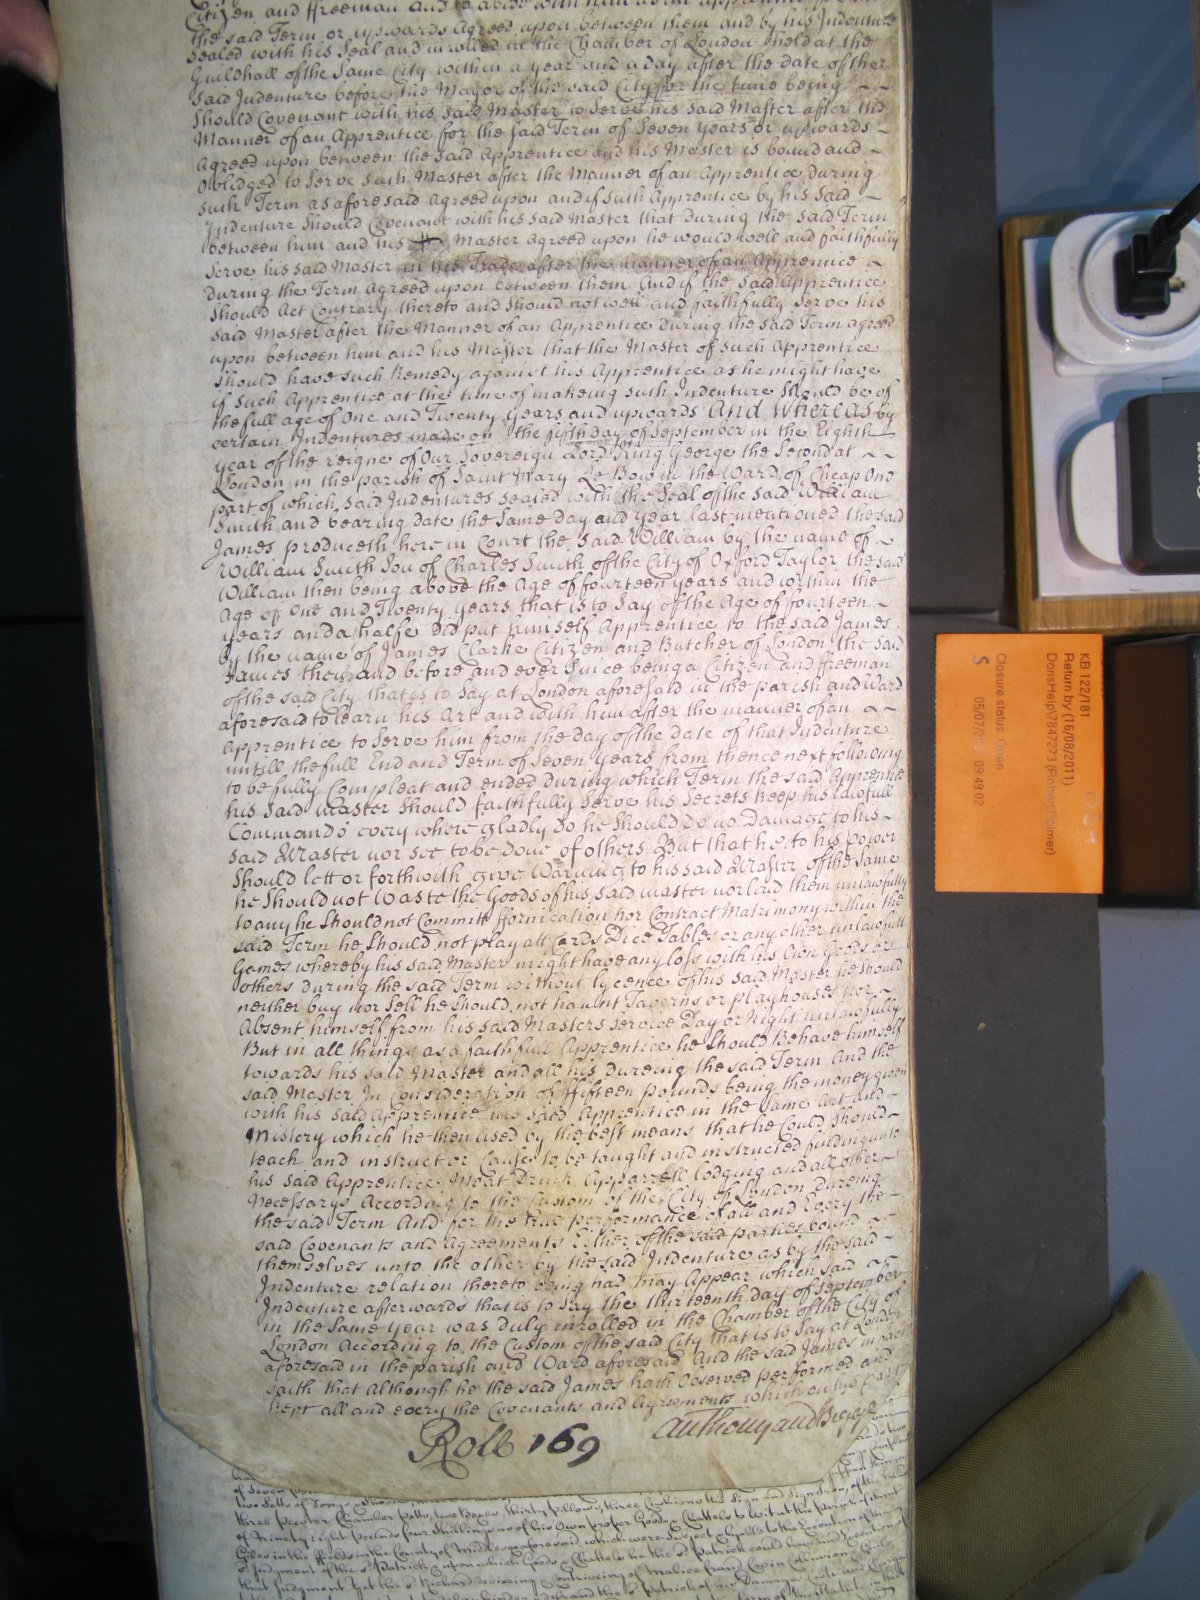 Citizen and Freeman and to abide with him as an apprentice
the said Term or upwards Agreed upon between them and by his Indenture
Sealed with his Seal and inrolled in the Chamber of London held at the
Guildhall of the Same City within a year and a day after the date of the
said Indenture before the Mayor of the said City for the time being
Should Covenant with his said Master to Serve his said Master after the
Manner of an Apprentice for the said Term of Seven years or upwards
Agreed upon between the said Apprentice and his Master is bound and
Obliged to Serve Such Master after the Manner of an Apprentice during
such Term as aforesaid Agreed upon and if Such Apprentice by his Said
Indenture Should Covenant with his said Master that during the said Term
between him and his Master Agreed upon he would well and faithfully
Serve his said Master in his Trade after the manner of an Apprentice
during the Term Agreed upon between them And if the said Apprentice
Should Act Contrary thereto and Should not well and faithfully Serve his
said Master after the Manner of an Apprentice during the said Term agreed
upon between him and his Master that the Master of such Apprentice
Should have such Remedy against his Apprentice as he might have
if such Apprentice at the time of making such Indenture Should be of
the full age of One and Twenty years and upwards And whereas by
certain Indentures made on the fifth day of September in the Eighth
year of the reigne of Our Sovereign Lord King George the Second at
London in the parish of Saint Mary Le Bow in the Ward of Cheap One
part of which said Indentures sealed with the Seal of the said William
Smith and bearing date the Same day and year last mentioned the said
James produceth here in Court the said William by the name of
William Smith Son of Charles Smith of the City of Oxford Taylor the said
William then being above the Age of fourteen years and within the
Age of One and Twenty years that is to Say of the Age of fourteen
years and a halfe did put himself Apprentice to the said James
by the name of James Clarke Citizen and Butcher of London the said
James then and before and ever since being a Citizen and freeman
of the said City that is to Say at London aforesaid in the parish and Ward
aforesaid to learn his Art and with him after the manner of an
Apprentice to Serve him from the day of the date of that Indenture
untill the full End and Term of Seven years from thence next following
to be fully Compleat and ended during which Term the said Apprentice
his said Master Should faithfully Serve his Secrets keep his lawfull
Commands every where gladly do he Should do no Damage to his
said Master nor see to be done of others But that he to his power
Should lett or forthwith give Warning to his said Master of the same
he Should not Waste the Goods of his said master nor lend them unlawfully
to any he Should not Committ ffornication nor Contract Matrimony within the
said Term he Should not play att Cards Dice Tables or any other unlawfull
Games whereby his said Master might have any loss with his Own Goods or
others during the said Term without lycence of his said Master he Should
neither buy nor Sell he Should not haunt Taverns or playhouses nor
Absent himself from his said Masters Service Day or Night unlawfully
But in all things as a faithfull Apprentice he Should Behave himself
towards his said Master and all his dureing the said Term And the
said Master In Consideration of ffifteen pounds being the money given
with his said Apprentice his said Apprentice in the Same Art and
Mistery which he then used by the best means that he Could Should
teach and instruct or Cause to be taught and instructed finding unto
his said Apprentice Meat Drink Apparrell lodging and all other
Necessarys According to the Custom of the City of London Dureing
the said Term And for the true performance of all and Every the
said Covenants and Agreements Either of the said parties bound
themselves unto the other by the said Indenture as by the said
Indenture relation thereto being had may Appear which said
Indenture afterwards that is to Say the thirteenth day of September
in the Same year was duly inrolled in the Chamber of the City of
London According to the Custom of the said City that is to Say at London
aforesaid in the parish and Ward aforesaid And the said James in fact
saith that Although he the said James hath Observed performed and
kept all and every the Covenants and Agreements which on his part
Roll 169
Anthony and
of Seven
three Pewter Chamber Potts, two Boxes, thirty Pillows, three Cushions the Sign and Sign Iron, of the
of Ninety eight pounds four shillings as of his Own proper Goods & Chattels to wit at the Parish of Saint
Giles in the ffields in the County of Middlesex aforesaid which were
KB 122/181
Return by (16/08/2011)
Closure status Open
S
09:49:02